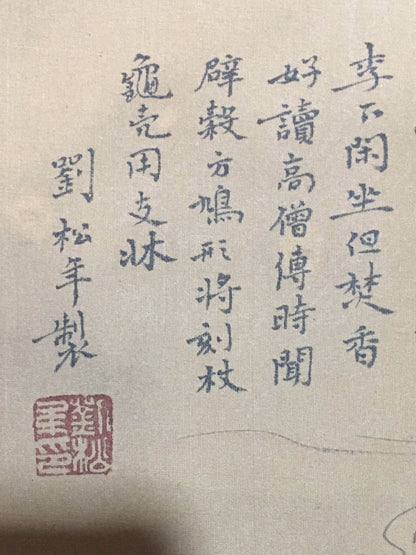 李下閑坐但焚香
好讀高僧傳時聞
辟穀方鳩形将刻杖
龜壳用支牀
劉松年製
劉松年印